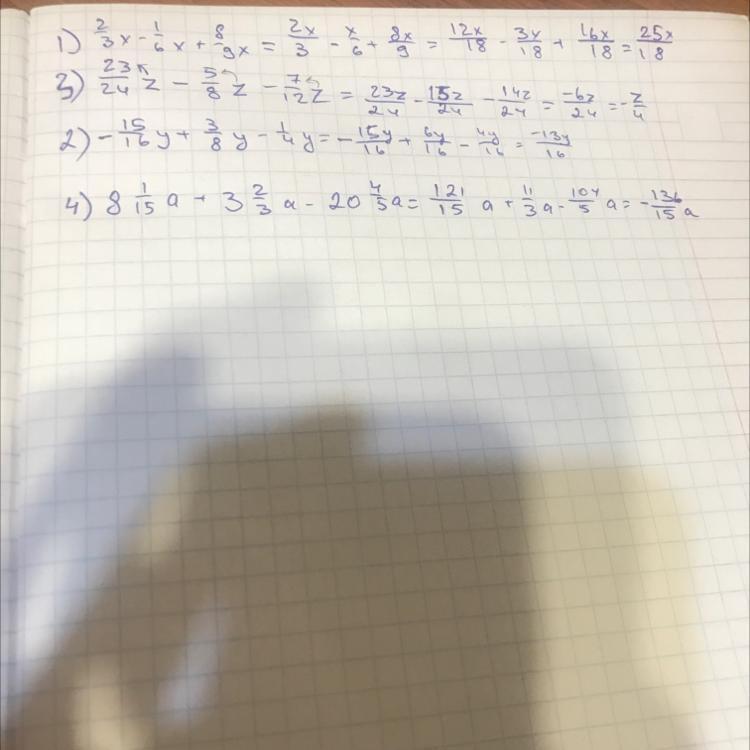 1) 2/3 x - 1/6 x + 8/9x = 2x/3 - x/6 + 8x/9 = 12x/18 - 3x/18 + 16x/18 = 25x/18
3) 23/24 z - 5/8 z - 7/12 z = 23z/24 - 15z/24 - 14z/24 = -6z/24 = -z/4
2) - 15/16 y + 3/8 y - 1/4 y = - 15y/16 + 6y/16 - 4y/16 = -13y/16
4) 8 1/15 a + 3 2/3 a - 20 4/5 a = 121/15 a + 11/3 a - 104/5 a = - 136/15 a